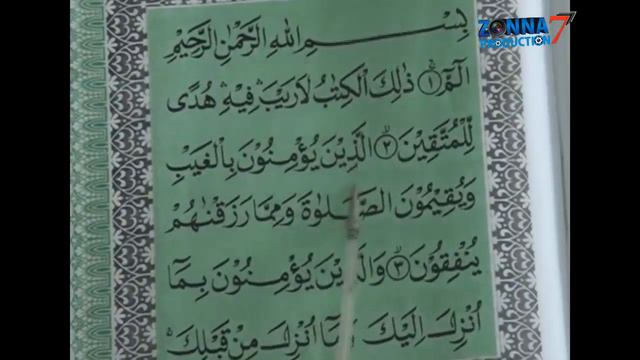 ZONNA 7
PRODUCTION
بِسْمِ اللهِ الرَّحْمٰنِ الرَّحِيْمِ
الٓمّٓ ۚ ﴿١﴾ ذٰلِكَ الْكِتٰبُ لَا رَيْبَ ۛ فِيْهِ ۛ هُدًى
لِّلْمُتَّقِيْنَ ۙ ﴿٢﴾ الَّذِيْنَ يُؤْمِنُوْنَ بِالْغَيْبِ
وَيُقِيْمُوْنَ الصَّلٰوةَ وَمِمَّا رَزَقْنٰهُمْ
يُنْفِقُوْنَ ۙ ﴿٣﴾ وَالَّذِيْنَ يُؤْمِنُوْنَ بِمَآ
اُنْزِلَ اِلَيْكَ وَمَآ اُنْزِلَ مِنْ قَبْلِكَ ۚ